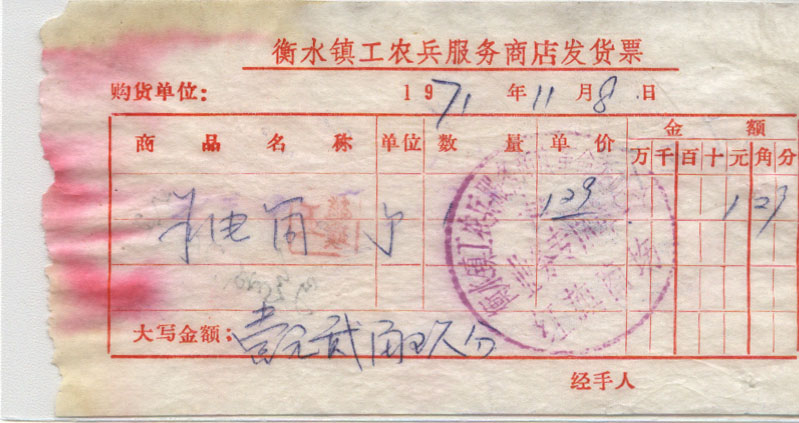 衡水镇工农兵服务商店发货票
购货单位： 1971年11月8日
商品名称 单位 数量 单价 金额
万千百十元角分
电筒 个 129 129
大写金额：壹元贰角玖分
经手人